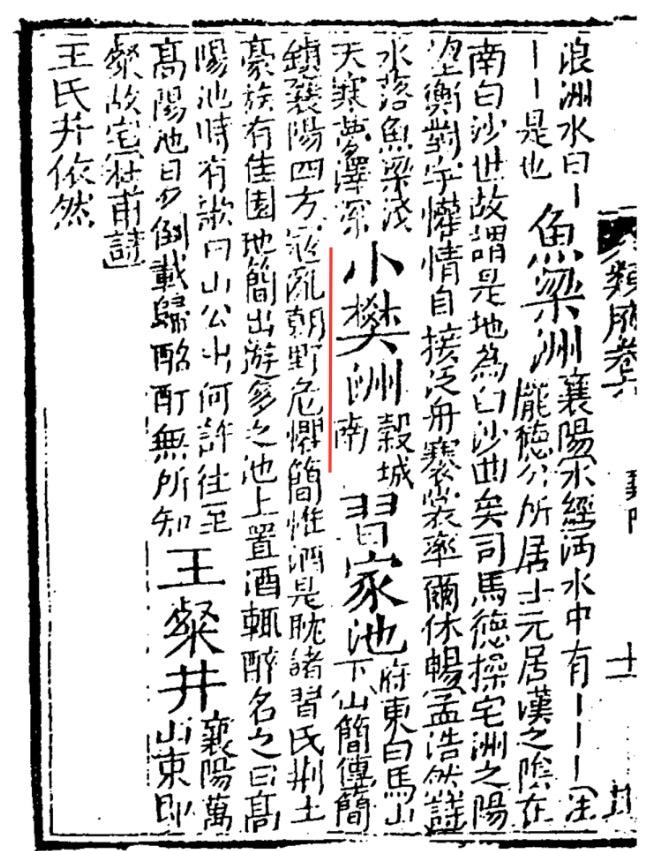 浪洲水曰〡
〡〡是也
魚梁洲
襄陽水經沔水中有〡〡〡
龐德公所居士元居漢之陰在
南白沙世故謂是地為白沙曲矣司馬德操宅洲之陽
望衡對宇懽情自接泛舟褰裳率爾休暢孟浩然詩
水落魚梁淺
天寒夢澤深
小樊洲
穀城
南
習家池
府東白馬山
下山簡傳簡
鎮襄陽四方寇亂朝野危懼簡惟酒是耽諸習氏荆土
豪族有佳園池簡出遊多之池上置酒輒醉名之曰高
陽池時有歌曰山公出何許往至
高陽池日夕倒載歸酩酊無所知
王粲井
襄陽萬
山東即
粲故宅杜甫詩
王氏井依然